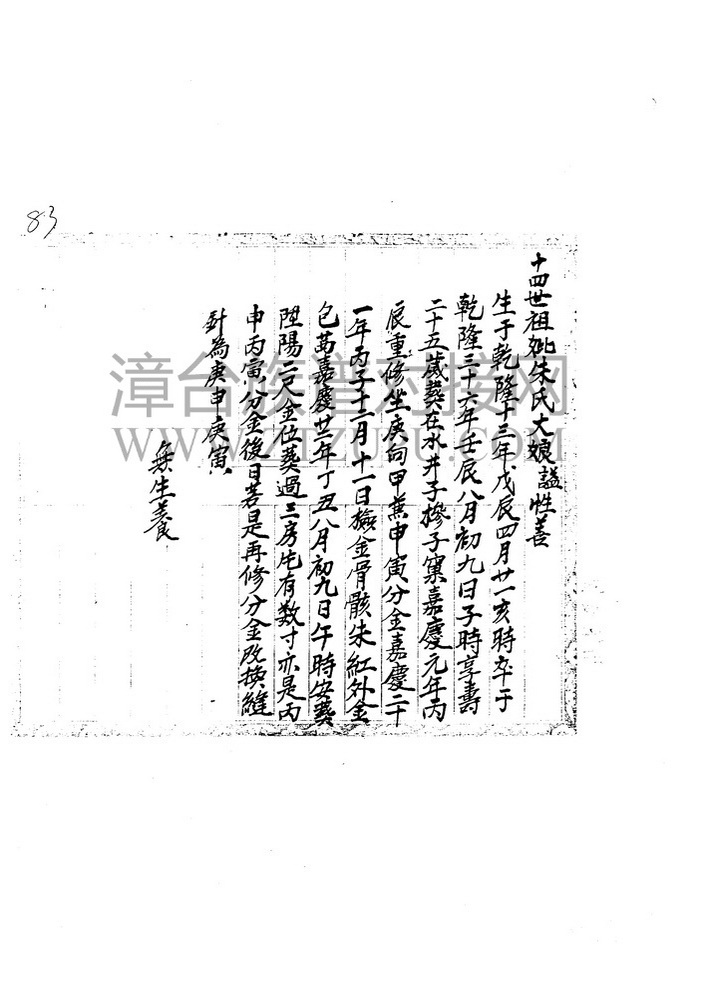 83
十四世祖妣朱氏大娘諡性善
生于乾隆十三年戊辰四月廿一亥時卒于
乾隆三十六年壬辰八月初九日子時享壽
二十五歲葬在水井子摻子窠嘉慶元年丙
辰重修坐庚向甲兼申寅分金嘉慶二十
一年丙子十二月十一日撿金骨骸朱紅外金
包茜嘉慶廿二年丁丑八月初九日午時安葬
陞陽二尺金位葬過三房片有数寸亦是丙
申丙寅分金後日若是再修分金改換縫
針為庚申庚寅
無生養
漳台族谱对接网
WWW.ZTZUPU.COM